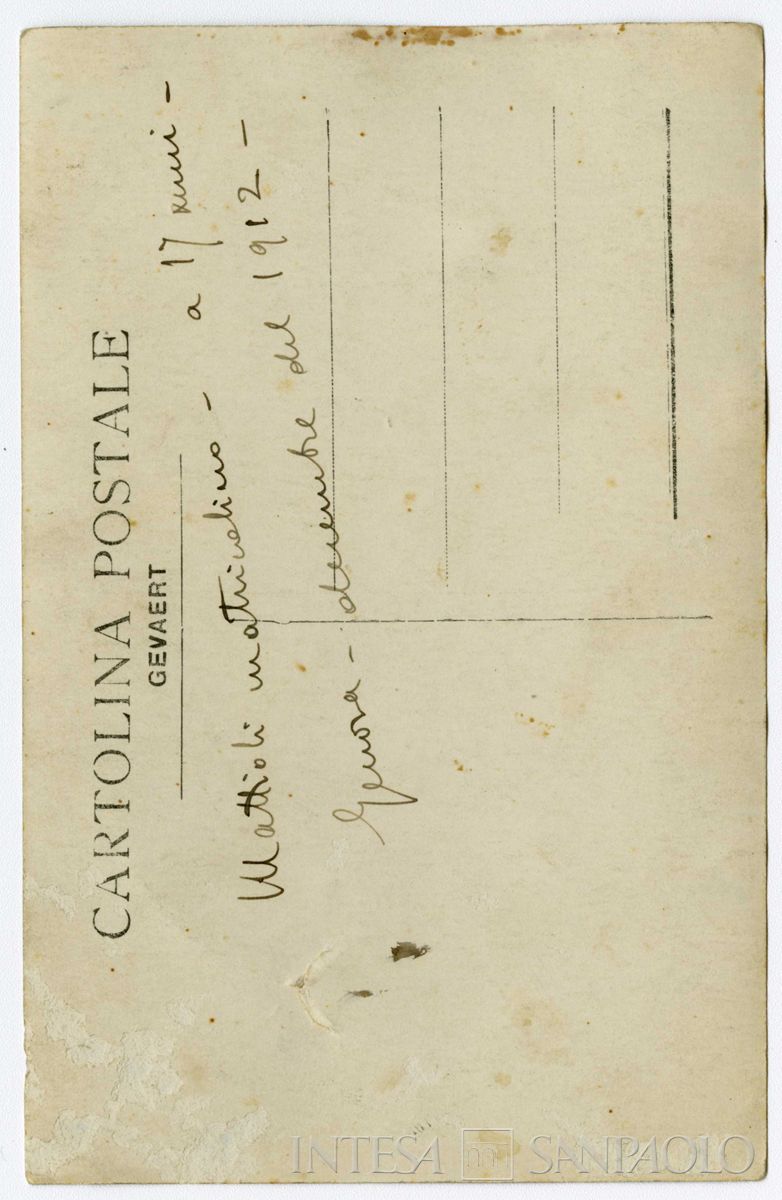 CARTOLINA POSTALE
GEVAERT
Mattioli matricolino – a 17 anni –
Genova – dicembre del 1912 –
INTESA m SANPAOLO